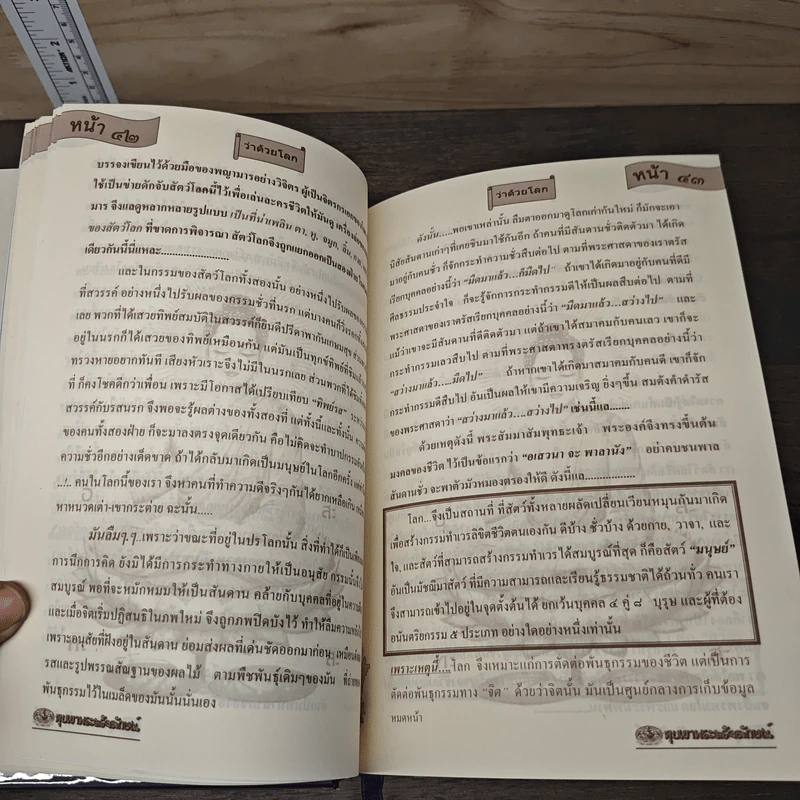 หน้า ๔๒
ว่าด้วยโลก
บรรจงเขียนไว้ด้วยมือของพญามารอย่างวิจิตร ผู้เป็นจิตรกรเอก
ใช้เป็นข่ายดักจับสัตว์โลกนี้ไว้เพื่อเล่นละครชีวิตให้มันดู
มาร จึงแลดูหลากหลายรูปแบบ เป็นที่น่าเพลิน ตา, หู, จมูก, ลิ้น, กาย
ของสัตว์โลก ที่ขาดการพิจารณา สัตว์โลกจึงถูกแยกออกเป็นสองฝ่าย
เดียวกันนี้นี่แหละ.......................
และในกรรมของสัตว์โลกทั้งสองนั้น อย่างหนึ่งไปรับผลของกรรม
ที่สวรรค์ อย่างหนึ่งไปรับผลของกรรมชั่วที่นรก แต่บางคนก็
เลย พวกที่ได้เสวยทิพย์สมบัติในสวรรค์ก็ยินดีปรีดาพากันเกษมสุข
อยู่ในนรกก็ได้เสวยของทิพย์เหมือนกัน แต่มันเป็นทุกข์ทิพย์ที่
ทรวงหายอยากทันที เสียงหัวเราะจึงไม่มีในนรกเลย ส่วนพวกที่ได้
ที่ ก็คงโชคดีกว่าเพื่อน เพราะมีโอกาสได้เปรียบเทียบ “ทิพย์รส”
สวรรค์กับรสนรก จึงพอจะรู้ผลต่างของทั้งสองที่ แต่ทั้งนี้และทั้งนั้น
ของคนทั้งสองฝ่าย ก็จะมาลงตรงจุดเดียวกัน คือไม่คิดจะทำบาปกรรม
ความชั่วอีกอย่างเด็ดขาด ถ้าได้กลับมาเกิดเป็นมนุษย์ในโลกอีกครั้ง
..!.. คนในโลกนี้ของเรา จึงหาคนที่ทำความดีจริงๆกันได้ยากเหลือเกิน
หาหนวดเต่า-เขากระต่าย ฉะนั้น.....
มันลืมๆๆ..เพราะว่าขณะที่อยู่ในปรโลกนั้น สิ่งที่ทำได้ก็เป็นเพียง
การนึกการคิด ยังมิได้มีการกระทำทางกายให้เป็นอนุสัย กรรมนั้นจึง
สมบูรณ์ พอที่จะหมักหมมให้เป็นสันดาน คล้ายกับบุคคลที่อยู่ในความฝัน
และเมื่อจิตเริ่มปฏิสนธิในภพใหม่ จึงถูกภพปิดบังไว้ ทำให้ลืมความหลัง
เพราะอนุสัยที่ฝังอยู่ในสันดาน ย่อมส่งผลที่เด่นชัดออกมาก่อน เหมือนดัง
รสและรูปพรรณสัณฐานของผลไม้ ตามพืชพันธุ์เดิมๆของมัน ที่ถ่ายทอด
พันธุกรรมไว้ในเมล็ดของมันนั้นนั่นเอง
หน้า ๔๓
ว่าด้วยโลก
ดังนั้น.....พอเขาเหล่านั้น ลืมตาออกมาดูโลกเก่ากันใหม่ ก็มักจะเอา
นิสัยสันดานเก่าๆที่เคยชินมาใช้กันอีก ถ้าคนที่มีสันดานชั่วติดตัวมา ได้เกิด
มาอยู่กับคนชั่ว ก็จักกระทำความชั่วสืบต่อไป ตามที่พระศาสดาของเราตรัส
เรียกบุคคลอย่างนี้ว่า “มืดมาแล้ว...ก็มืดไป” ถ้าเขาได้เกิดมาอยู่กับคนที่ดีมี
ศีลธรรมประจำใจ ก็จะรู้จักการกระทำกรรมดีให้เป็นผลสืบต่อไป ตามที่
พระศาสดาของเราตรัสเรียกบุคคลอย่างนี้ว่า “มืดมาแล้ว...สว่างไป” และ
แม้ว่าเขาจะมีสันดานที่ดีติดตัวมา แต่ถ้าเขาได้สมาคมกับคนเลว เขาก็จะ
กระทำกรรมเลวสืบไป ตามที่พระศาสดาทรงตรัสเรียกบุคคลอย่างนี้ว่า
“สว่างมาแล้ว....มืดไป” ถ้าหากเขาได้เกิดมาสมาคมกับคนดี เขาก็จัก
กระทำกรรมดีสืบไป อันเป็นผลให้เขามีความเจริญ ยิ่งๆขึ้น สมดังคำดำรัส
ของพระศาสดาว่า “สว่างมาแล้ว....สว่างไป” เช่นนี้แล.......
ด้วยเหตุดังนี้ พระสัมมาสัมพุทธะเจ้า พระองค์จึงทรงขึ้นต้น
มงคลของชีวิต ไว้เป็นข้อแรกว่า “อเสวนา จะ พาลานัง” อย่าคบชนพาล
สันดานชั่ว จะพาตัวมัวหมองตรองให้ดี ดังนี้แล...............
โลก...จึงเป็นสถานที่ ที่สัตว์ทั้งหลายผลัดเปลี่ยนเวียนหมุนกันมาเกิด
เพื่อสร้างกรรมทำเวรลิขิตชีวิตตนเองกัน ดีบ้าง ชั่วบ้าง ด้วยกาย, วาจา, และ
ใจ, และสัตว์ที่สามารถสร้างกรรมทำเวรได้สมบูรณ์ที่สุด ก็คือสัตว์ “มนุษย์”
อันเป็นมัชฌิมาสัตว์ ที่มีความสามารถและเรียนรู้ธรรมชาติได้ถ้วนทั่ว คนเรา
จึงสามารถเข้าไปอยู่ในจุดตั้งต้นได้ ยกเว้นบุคคล ๔ คู่ ๘ บุรุษ และผู้ที่ต้อง
อนันตริยกรรม ๕ ประเภท อย่างใดอย่างหนึ่งเท่านั้น
เพราะเหตุนี้....โลก จึงเหมาะแก่การตัดต่อพันธุกรรมของชีวิต แต่เป็นการ
ตัดต่อพันธุกรรมทาง “จิต” ด้วยว่าจิตนั้น มันเป็นศูนย์กลางการเก็บข้อมูล
หมดหน้า